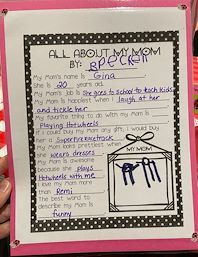 ALL ABOUT MY MOM
BY: BPECKETT
My Mom's name is Gina.
She is 20 years old.
My Mom's job is She goes to school to teach kids
My Mom is happiest when I laugh at her
and tickle her.
My favorite thing to do with my Mom is
Playing Hotwheels.
If I could buy my Mom any gift, I would buy
her a Super Fire Race track.
My Mom looks prettiest when
she wears dresses.
My Mom is awesome
because she plays
Hotwheels with me.
I love my Mom more
than Remi.
The best word to
describe my Mom is
funny.
MY MOM